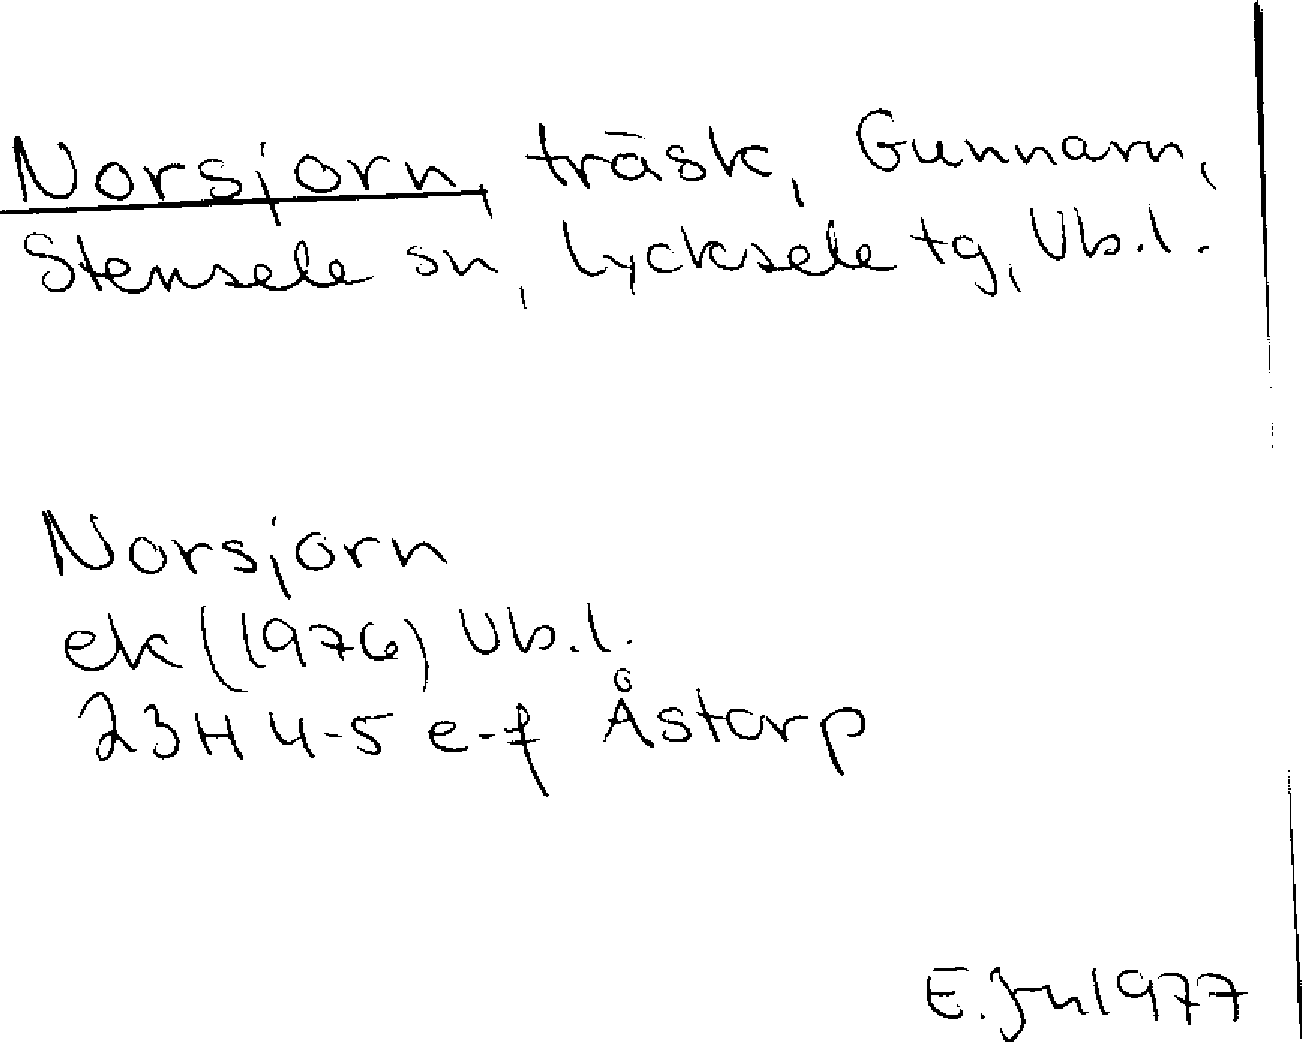 Norsjorn, träsk, Gunnarn,
Stensele sn, Lycksele tg, Vb.l.
Norsjorn
ek (1976) Vb.l.
23H 4-5 e-f Åstorp
E. Jn 1977